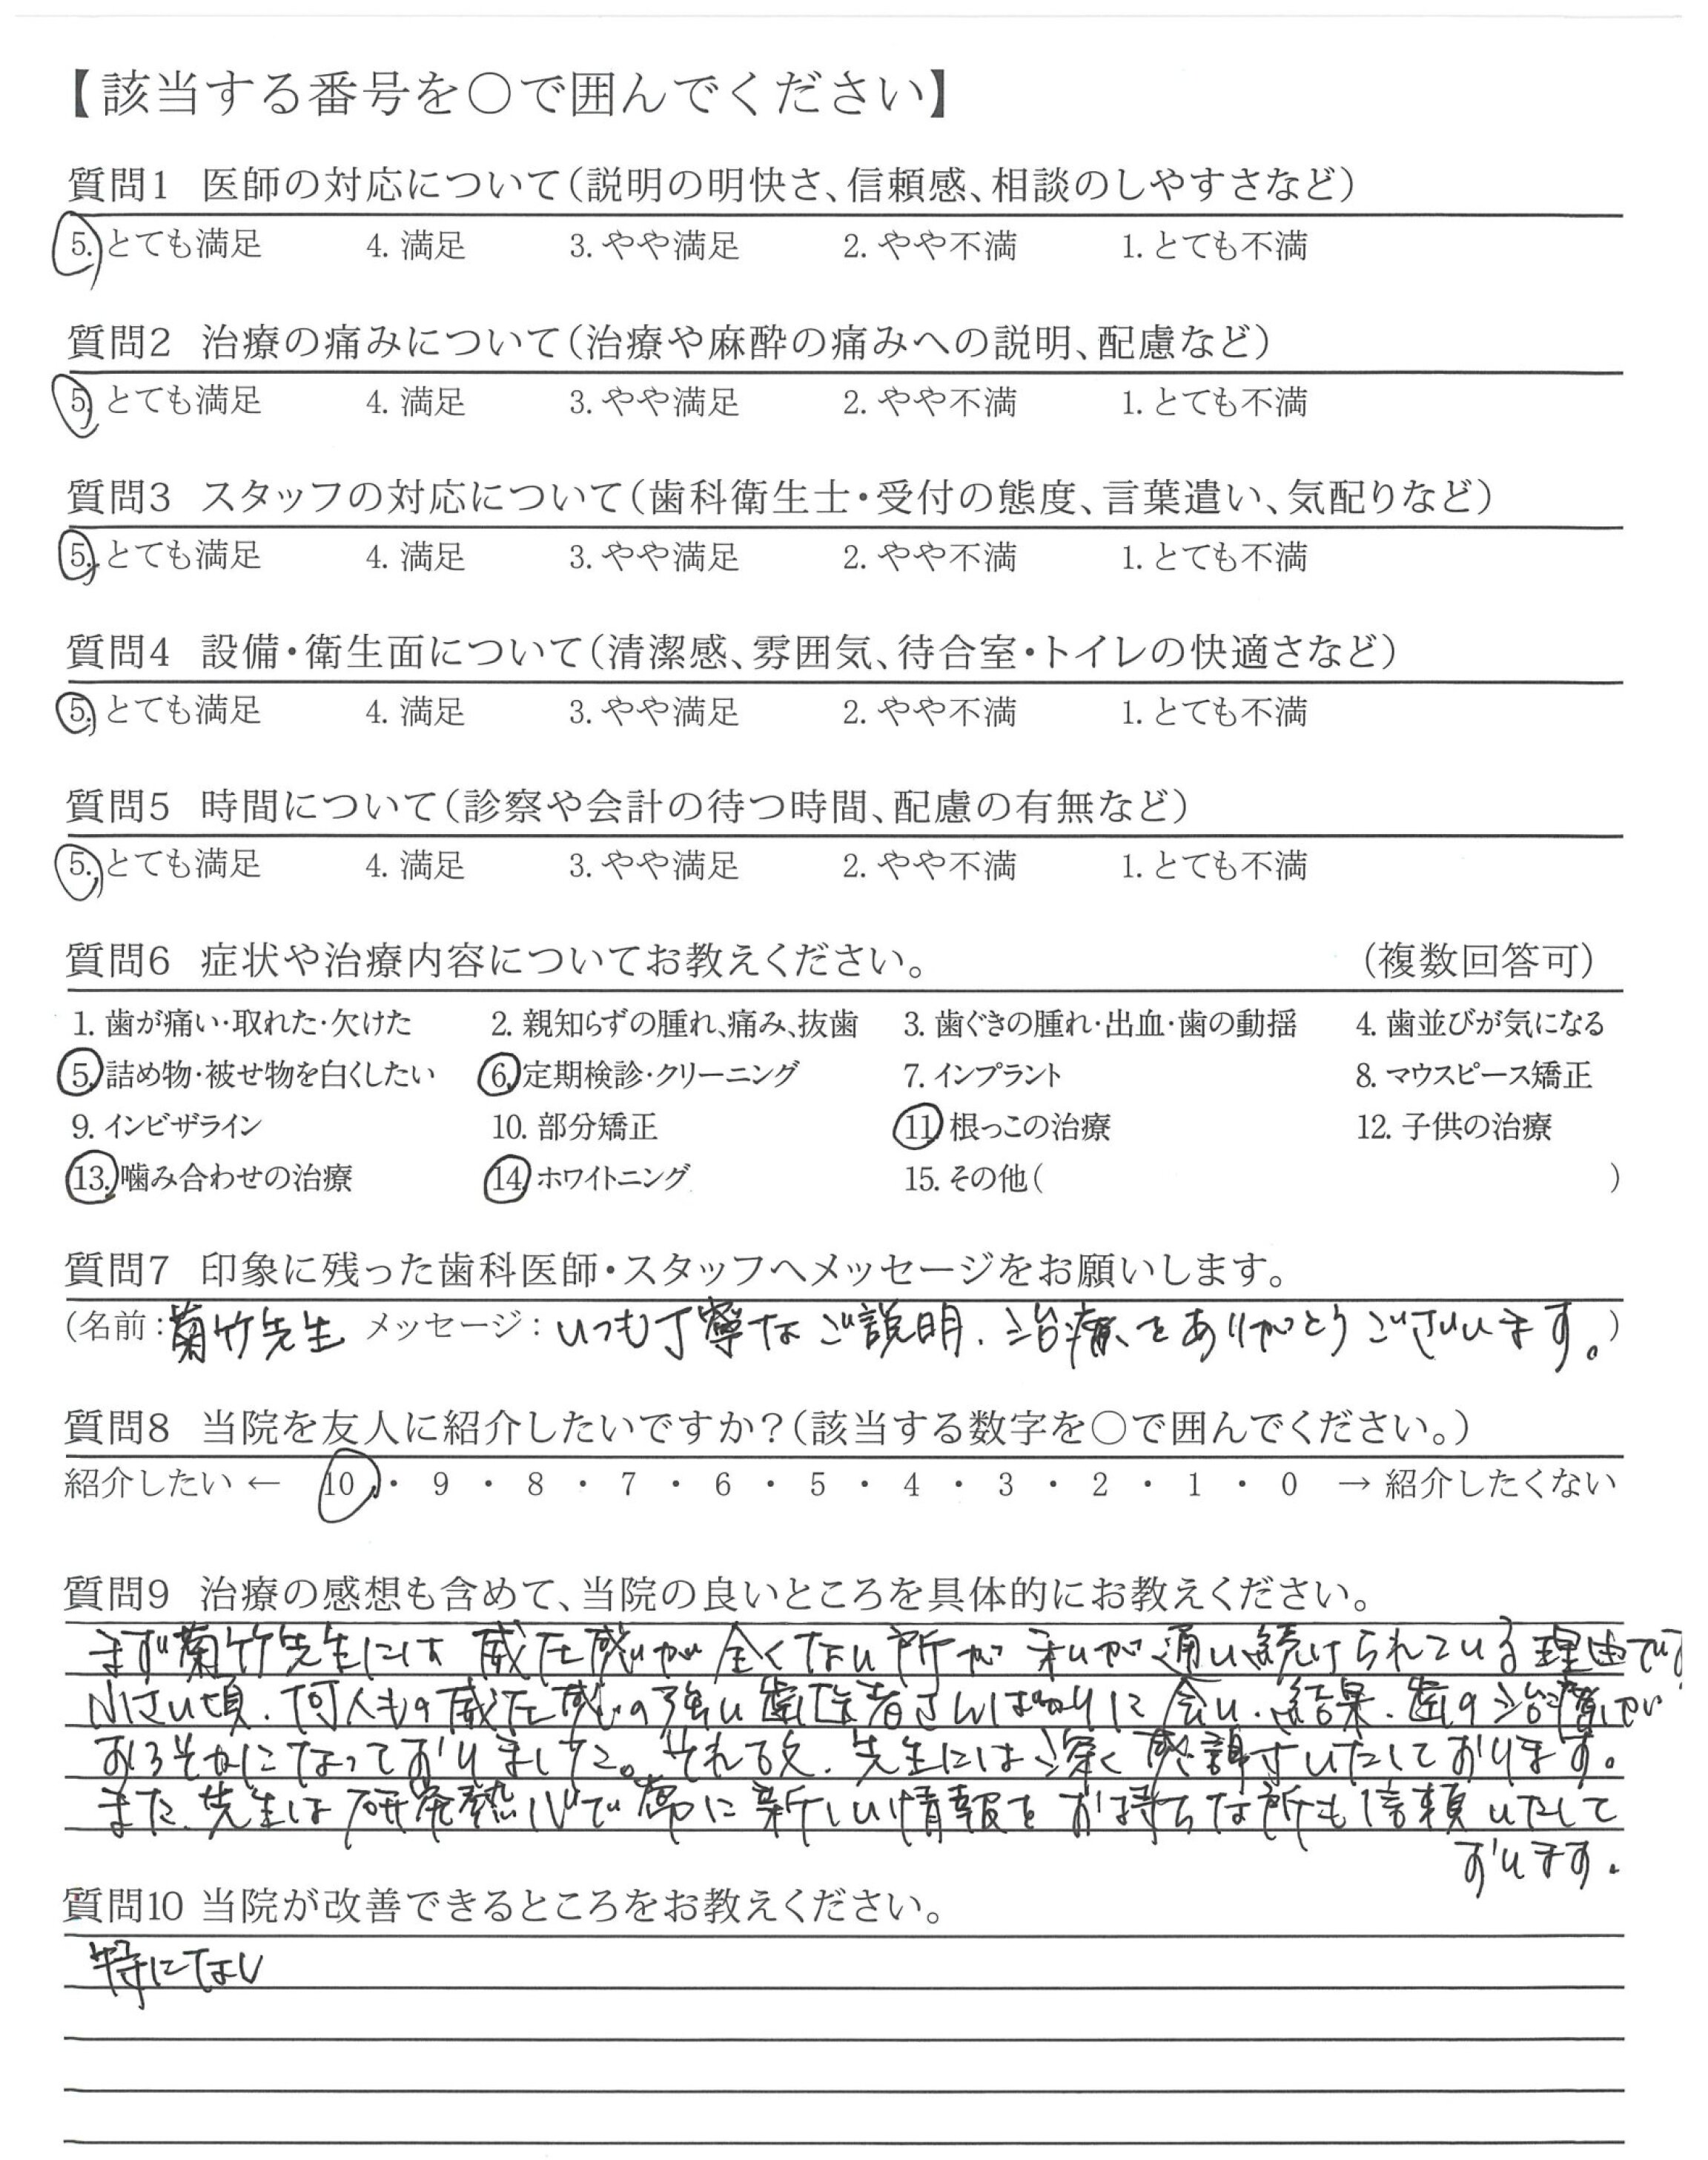 【該当する番号を○で囲んでください】
質問1 医師の対応について（説明の明快さ、信頼感、相談のしやすさなど）
5. とても満足 4. 満足 3. やや満足 2. やや不満 1. とても不満
質問2 治療の痛みについて（治療や麻酔の痛みへの説明、配慮など）
5. とても満足 4. 満足 3. やや満足 2. やや不満 1. とても不満
質問3 スタッフの対応について（歯科衛生士・受付の態度、言葉遣い、気配りなど）
5. とても満足 4. 満足 3. やや満足 2. やや不満 1. とても不満
質問4 設備・衛生面について（清潔感、雰囲気、待合室・トイレの快適さなど）
5. とても満足 4. 満足 3. やや満足 2. やや不満 1. とても不満
質問5 時間について（診察や会計の待つ時間、配慮の有無など）
5. とても満足 4. 満足 3. やや満足 2. やや不満 1. とても不満
質問6 症状や治療内容についてお教えください。 （複数回答可）
1. 歯が痛い・取れた・欠けた 2. 親知らずの腫れ、痛み、抜歯 3. 歯ぐきの腫れ・出血・歯の動揺 4. 歯並びが気になる
5. 詰め物・被せ物を白くしたい 6. 定期検診・クリーニング 7. インプラント 8. マウスピース矯正
9. インビザライン 10. 部分矯正 11. 根っこの治療 12. 子供の治療
13. 噛み合わせの治療 14. ホワイトニング 15. その他（ ）
質問7 印象に残った歯科医師・スタッフへメッセージをお願いします。
（名前：菊竹先生 メッセージ：いつも丁寧なご説明、治療をありがとうございます。）
質問8 当院を友人に紹介したいですか？（該当する数字を○で囲んでください。）
紹介したい ← 10 ・ 9 ・ 8 ・ 7 ・ 6 ・ 5 ・ 4 ・ 3 ・ 2 ・ 1 ・ 0 → 紹介したくない
質問9 治療の感想も含めて、当院の良いところを具体的にお教えください。
まず菊竹先生には威圧感が全くない所が私が通い続けられている理由です
小さい頃、何人もの威圧感の強い歯医者さんばかりに会い、結果、歯の治療が
おろそかになっておりました。それ故、先生には深く感謝いたしております。
また、先生は研究熱心で常に新しい情報をお持ちな所も信頼いたして
おります。
質問10 当院が改善できるところをお教えください。
特になし